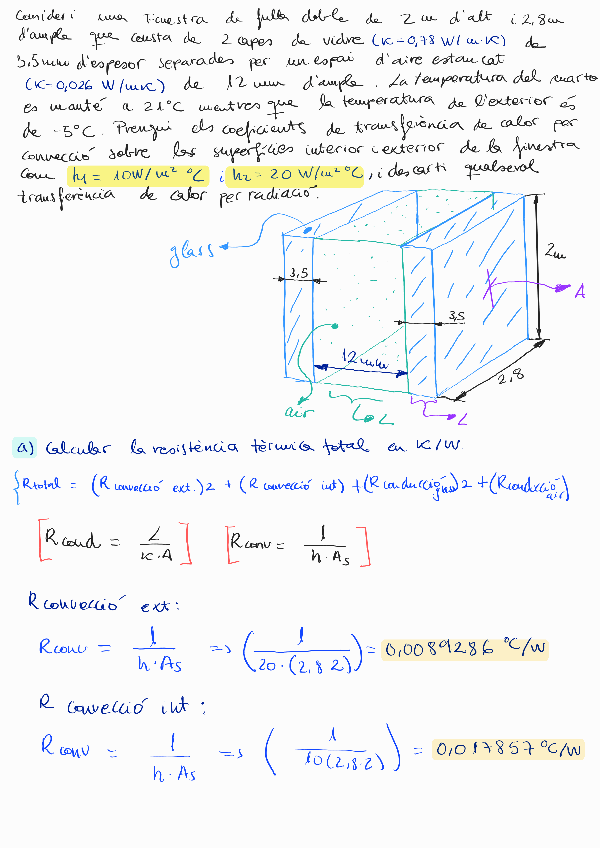 Consideri una finestra de fulla doble de 2 m d'alt i 2,8m
d'ample que consta de 2 capes de vidre (K=0,78 W/m·K) de
3,5mm d'espesor separades per un espai d'aire estancat
(K=0,026 W/mK) de 12 mm d'ample. La temperatura del quarto
es manté a 21°C mentres que la temperatura de l'exterior és
de -5°C. Prengui els coeficients de transferència de calor per
convecció sobre les superfícies interior i exterior de la finestra
com h1 = 10W/m² °C i h2 = 20 W/m² °C, i descarti qualsevol
transferència de calor per radiació.
glass
3,5
2m
A
3,5
12mm
2,8
air
L
L
a) Calcular la resistència tèrmica total en K/W
Rtotal = (R convecció ext.)2 + (R convecció int) + (R conducció glass)2 + (Rconducció air)
[Rcond = L / K·A] [Rconv = 1 / h·As]
R convecció ext:
Rconv = 1 / h·As => (1 / 20·(2,8·2)) = 0,0089286 °C/W
R convecció int:
Rconv = 1 / h·As => (1 / 10(2,8·2)) = 0,017857°C/W